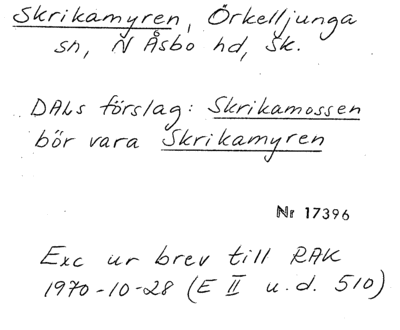 Skrikamyren, Örkelljunga
sn, N Åsbo hd, Sk.
DALs förslag: Skrikamossen
bör vara Skrikamyren
Nr 17396
Exc ur brev till RAK
1970-10-28 (E II u.d. 510)